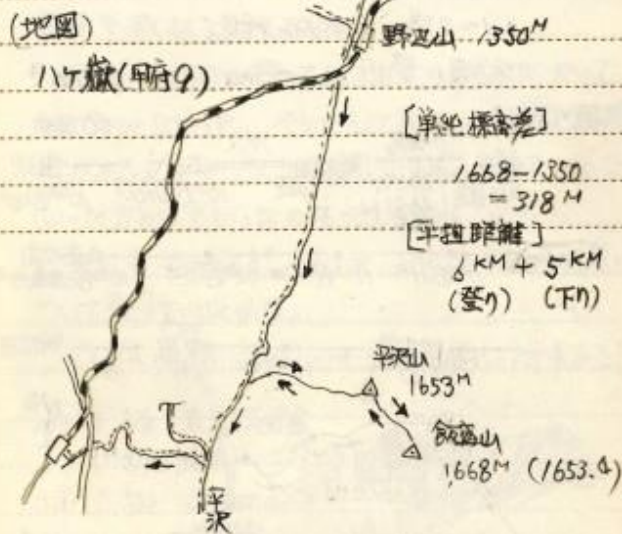 (地図)
八ヶ嶽(甲府9)
野辺山 1350M
[単純標高差]
1668-1350
=318M
[平担距離]
6KM + 5KM
(登り) (下り)
平沢山
1653M
飯盛山
1,668M (1653.4)
平沢